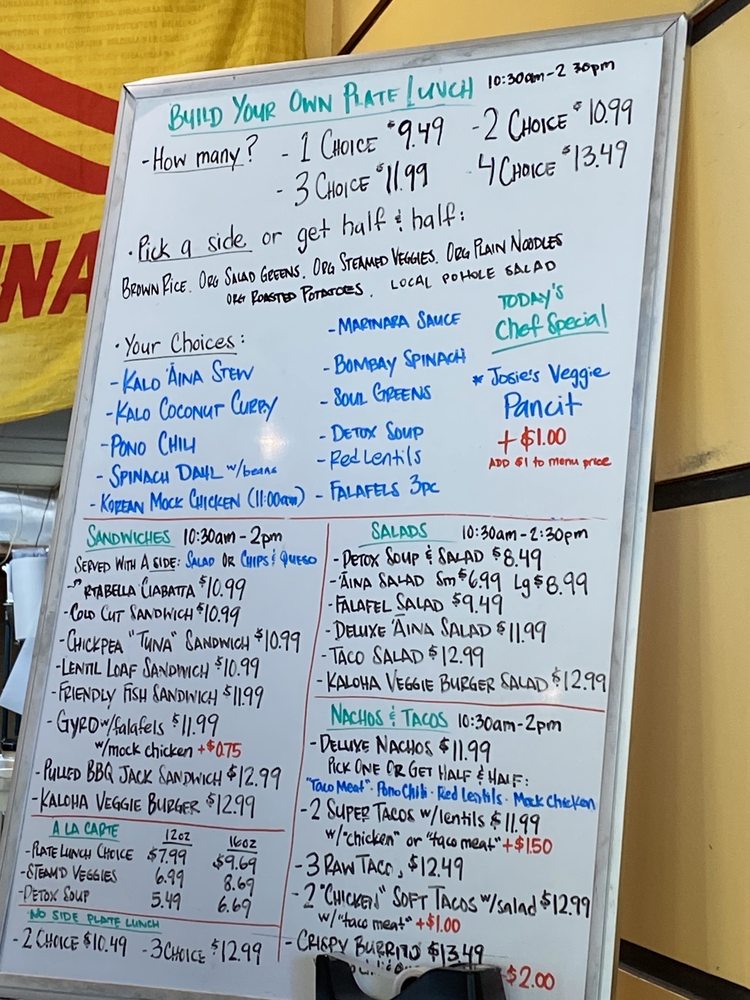 BUILD YOUR OWN PLATE LUNCH 10:30am-2 30pm
-How many? -1 CHOICE $9.49 -2 CHOICE $10.99
-3 CHOICE $11.99 4 CHOICE $13.49
·Pick a side or get half & half:
BROWN RICE. ORG SALAD GREENS. ORG STEAMED VEGGIES. ORG PLAIN NOODLES
ORG ROASTED POTATOES. LOCAL POHOLE SALAD
NA
·Your Choices:
-KALO 'ĀINA STEW
-KALO COCONUT CURRY
-PONO CHILI
-SPINACH DAHL w/beans
-KOREAN MOCK CHICKEN (11:00am)
-MARINARA SAUCE
-BOMBAY SPINACH
-SOUL GREENS
-DETOX SOUP
-Red Lentils
-FALAFELS 3pc
TODAY'S
Chef Special
* Josie's Veggie
Pancit
+$1.00
ADD $1 to menu price
SANDWICHES 10:30am-2pm
SERVED WITH A SIDE: SALAD OR CHIPS & QUESO
RTABELLA CIABATTA $10.99
-COLD CUT SANDWICH $10.99
-CHICKPEA "TUNA" SANDWICH $10.99
-LENTIL LOAF SANDWICH $10.99
-FRIENDLY FISH SANDWICH $11.99
-GYRO w/falafels $11.99
w/mock chicken +$0.75
-PULLED BBQ JACK SANDWICH $12.99
-KALOHA VEGGIE BURGER $12.99
A LA CARTE 12oz 16oz
-PLATE LUNCH CHOICE $7.99 $9.69
-STEAM'D VEGGIES 6.99 8.69
-DETOX SOUP 5.49 6.69
NO SIDE PLATE LUNCH
-2 CHOICE $10.49 -3 CHOICE $12.99
SALADS 10:30am-2:30pm
-DETOX SOUP & SALAD $8.49
-'ĀINA SALAD Sm $6.99 Lg $8.99
-FALAFEL SALAD $9.49
-DELUXE 'ĀINA SALAD $11.99
-TACO SALAD $12.99
-KALOHA VEGGIE BURGER SALAD $12.99
NACHOS & TACOS 10:30am-2pm
-DELUXE NACHOS $11.99
PICK ONE OR GET HALF & HALF:
"Taco Meat"·Pono Chili·Red Lentils·Mock Chicken
-2 SUPER TACOS w/lentils $11.99
w/"chicken" or "taco meat" +$1.50
-3 RAW TACO, $12.49
-2 "CHICKEN" SOFT TACOS w/salad $12.99
w/"taco meat" +$1.00
-CRISPY BURRITO $13.49
$2.00